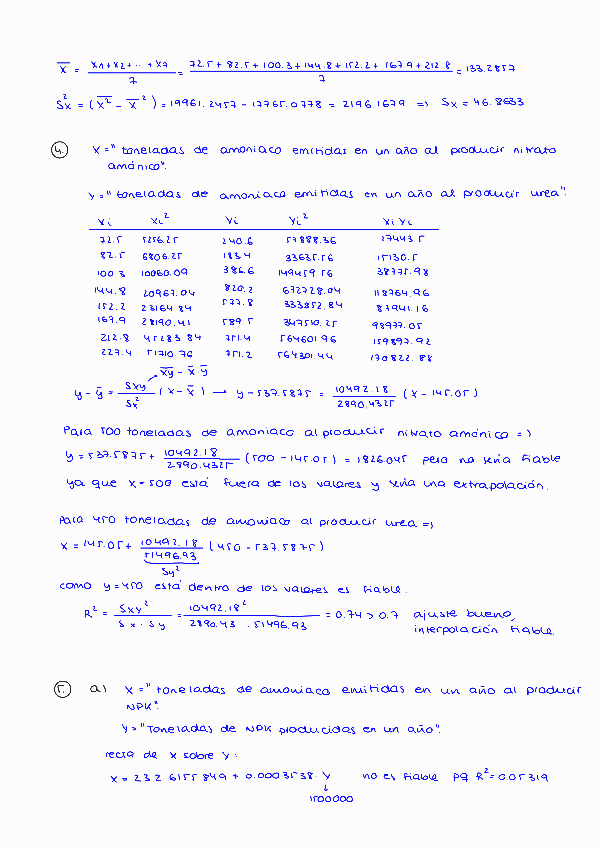 x̄ = (x1+x2+...+x7)/7 = (72.5+82.5+100.3+144.8+152.2+167.9+212.8)/7 = 133.2857
Sx² = (x̄² - x̄²) = 19961.2457 - 17765.0778 = 2196.1679 => Sx = 46.8633
4. X = "toneladas de amoniaco emitidas en un año al producir nitrato
amónico".
Y = "toneladas de amoniaco emitidas en un año al producir urea".
Xi Xi² Yi Yi² Xi Yi
72.5 5256.25 240.6 57888.36 17443.5
82.5 6806.25 183.4 33635.56 15130.5
100.3 10060.09 386.6 149459.56 38775.98
144.8 20967.04 820.2 672728.04 118764.96
152.2 23164.84 577.8 333852.84 87941.16
167.9 28190.41 589.5 347510.25 98977.05
212.8 45283.84 751.4 564601.96 159897.92
227.4 51710.76 751.2 564301.44 170822.88
x̄y - x̄·ȳ
y - ȳ = Sxy/Sx² (x - x̄) → y - 537.5875 = 10492.18/2890.4325 (x - 145.05)
Para 500 toneladas de amoniaco al producir nitrato amónico =>
y = 537.5875 + 10492.18/2890.4325 (500 - 145.05) = 1826.045 pero no sería fiable
ya que x = 500 está fuera de los valores y sería una extrapolación.
Para 450 toneladas de amoniaco al producir urea =>
x = 145.05 + 10492.18/51496.93 (450 - 537.5875)
Sy²
como y = 450 está dentro de los valores es fiable.
R² = Sxy²/(Sx · Sy) = 10492.18²/(2890.43 · 51496.93) = 0.74 > 0.7 ajuste bueno,
interpolación fiable.
5. a) X = "toneladas de amoniaco emitidas en un año al producir
NPK".
Y = "Toneladas de NPK producidas en un año".
recta de x sobre y:
X = 232.6155849 + 0.0003538 · Y no es fiable pq R² = 0.05319
↓
1500000